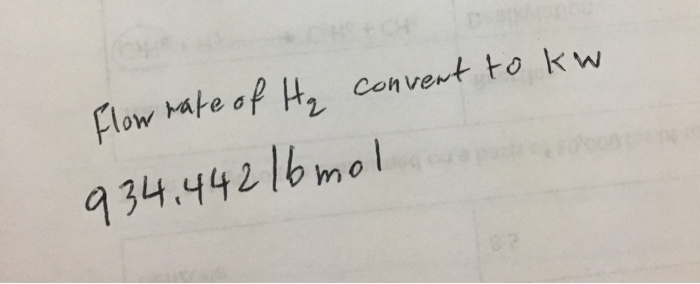 Flow rate of H₂ convert to kw
934.442 lbmol